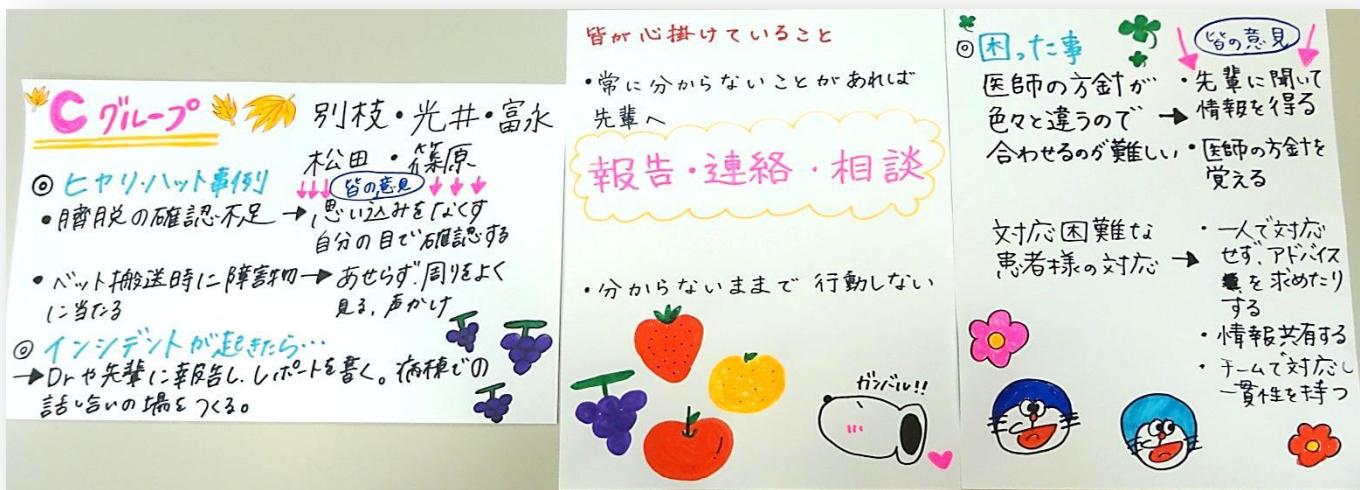 Cグループ
別枝・光井・富永
松田・篠原
◎ヒヤリ・ハット事例
皆の意見
・臍脱の確認不足→思い込みをなくす
自分の目で確認する
・ベット搬送時に障害物→あせらず、周りをよく
に当たる
見る、声かけ
◎インシデントが起きたら…
→Drや先輩に報告し、レポートを書く。病棟での
話し合いの場をつくる。
皆が心掛けていること
・常に分からないことがあれば
先輩へ
報告・連絡・相談
・分からないままで行動しない
ガンバル!!
◎困った事
皆の意見
医師の方針が
色々と違うので→
合わせるのが難しい
・先輩に聞いて
情報を得る
・医師の方針を
覚える
対応困難な
患者様の対応→
・一人で対応
せず、アドバイス
を求めたり
する
・情報共有する
・チームで対応し
一貫性を持つ